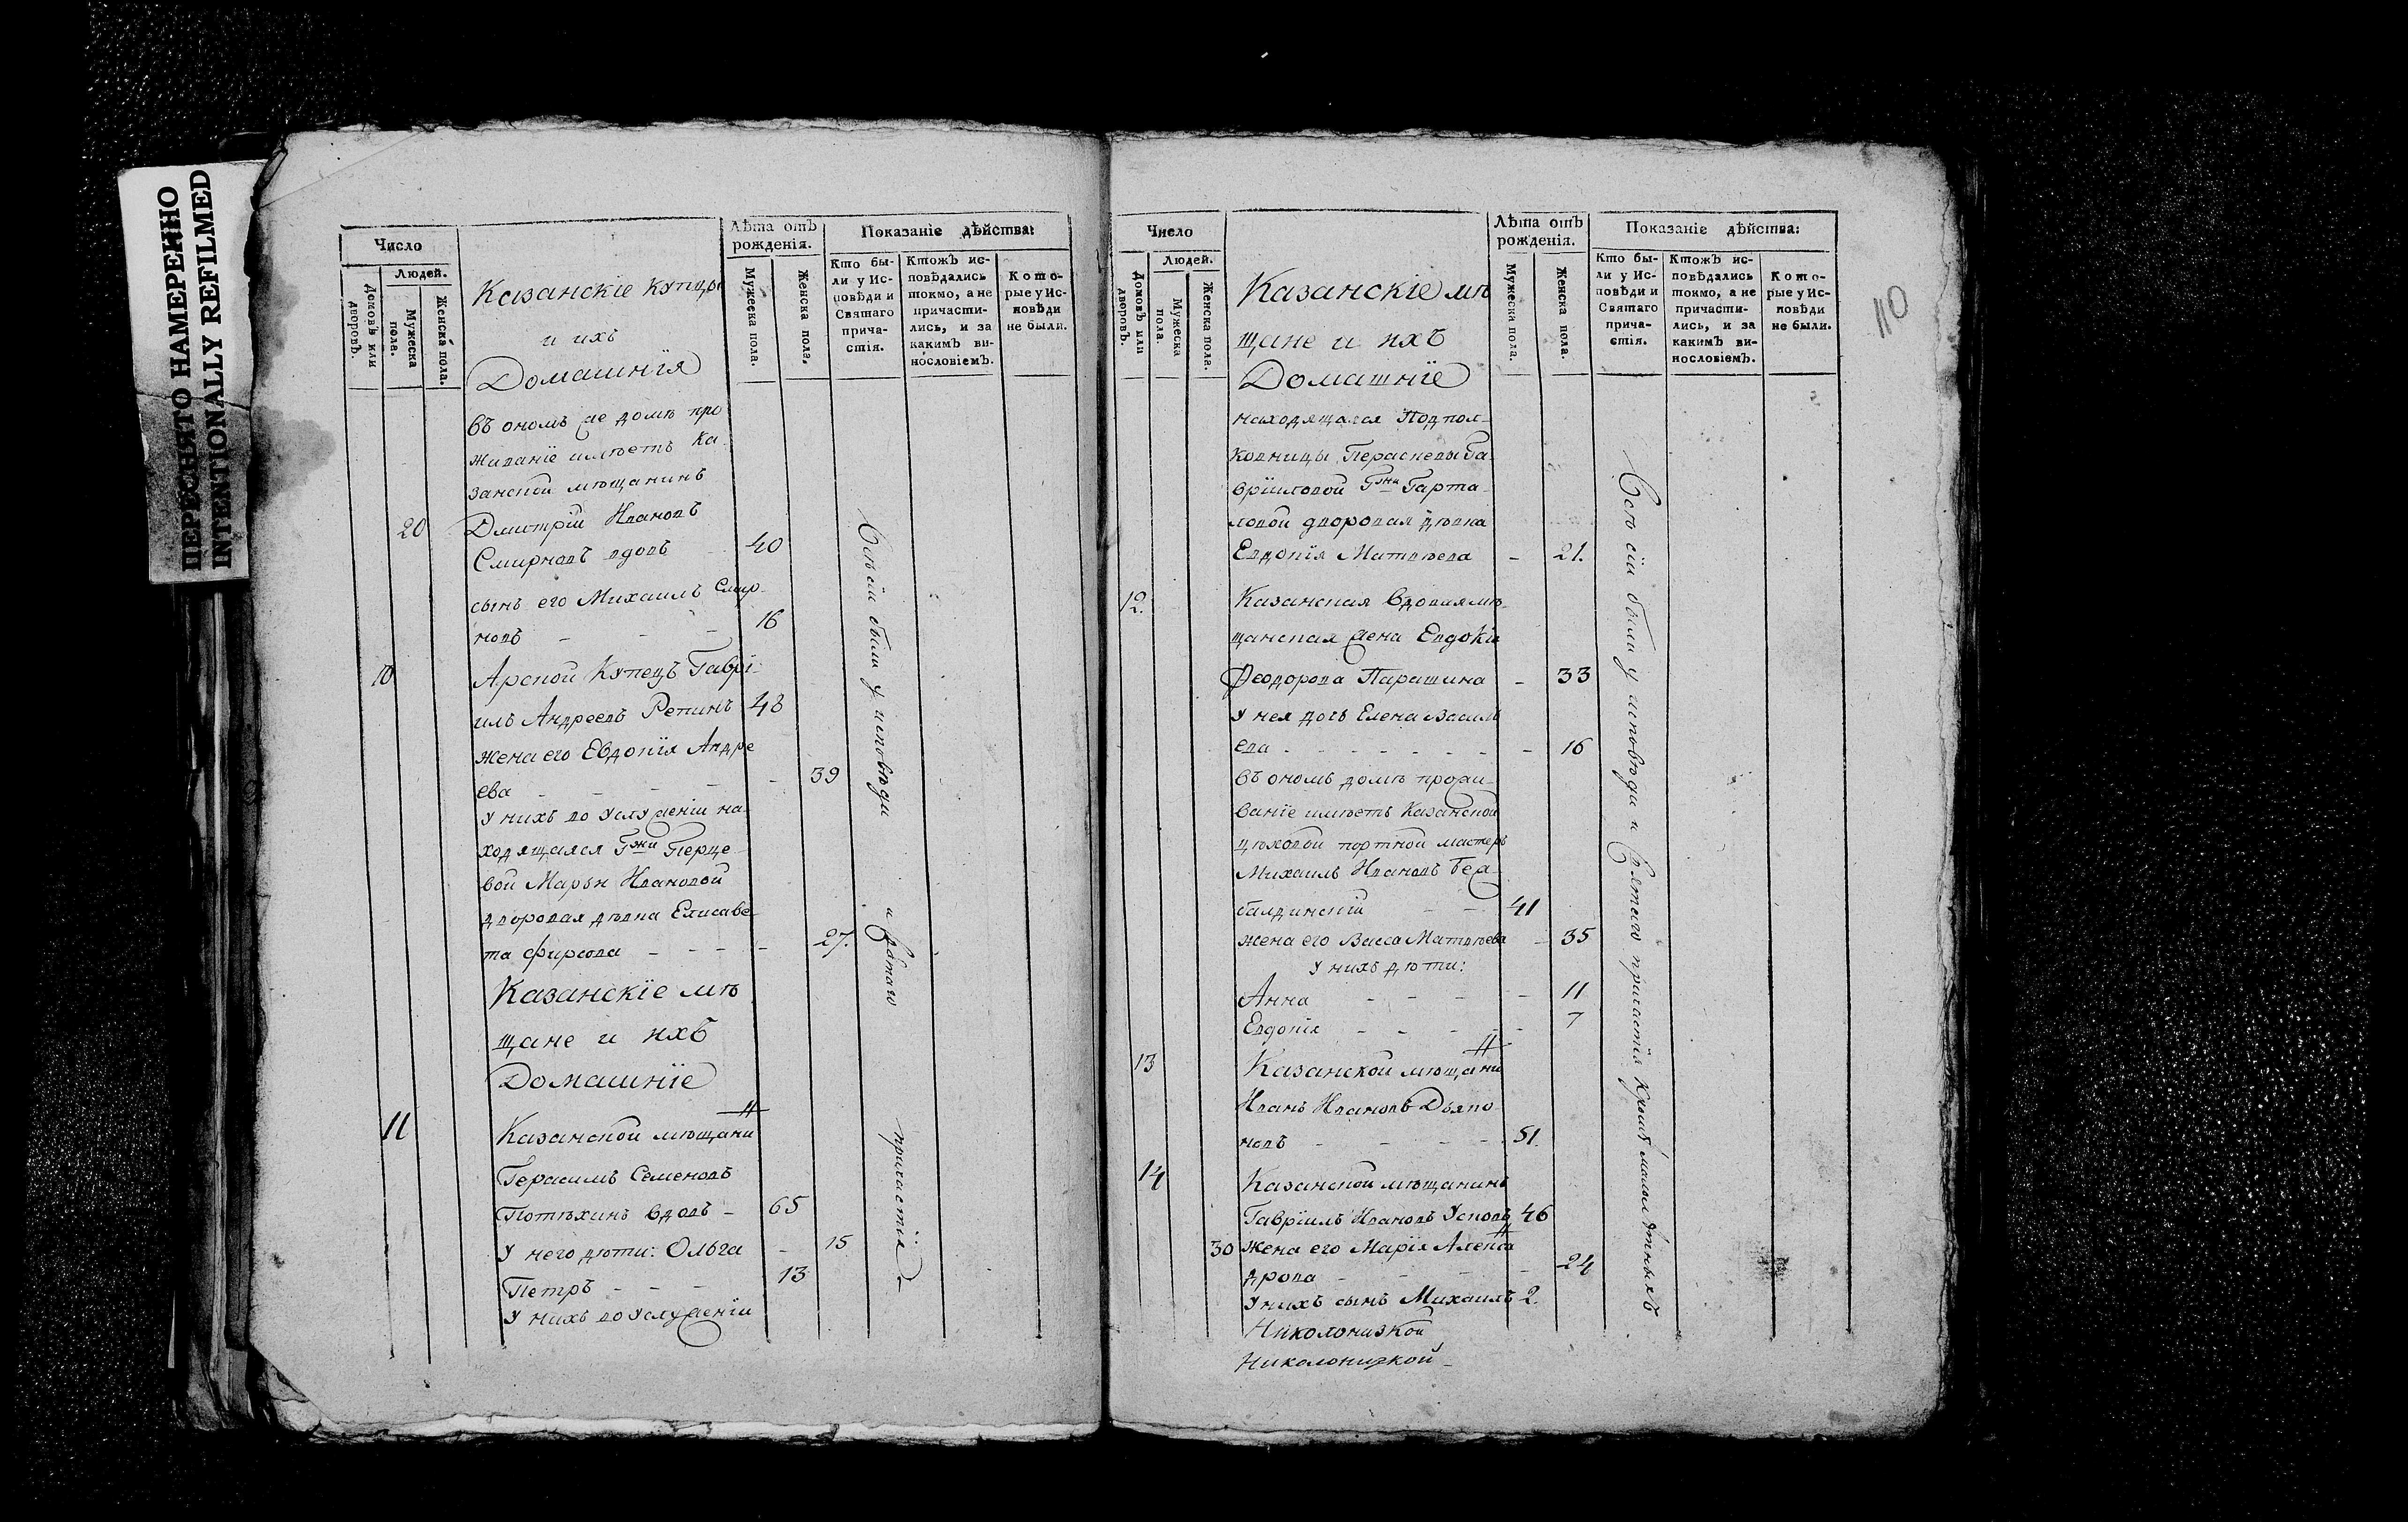 ПЕРЕСНЯТО НАМЕРЕННО
INTENTIONALLY REFILMED
Число
Людей.
Домовъ или дворовъ.
Мужеска пола.
Женска пола.
Казанскіе купцы
и ихъ
Домашнія
Лѣта отъ рожденія.
Мужеска пола.
Женска пола.
Показаніе дѣйства:
Кто были у Исповѣди и Святаго причастія.
Ктожъ исповѣдались токмо, а не причастились, и за какимъ винословіемъ.
Которые у Исповѣди не были.
въ ономъ же домѣ про
живаніе имѣетъ Ка
занской мѣщанинъ
20 Дмитрій Ивановъ
Смирновъ вдовъ 40
сынъ его Михаилъ Смир-
новъ - - - 16
10 Арской Купецъ Гаврі-
илъ Андреевъ Репинъ 48
жена его Евдокія Андре
ева - - - - - 39
У нихъ во услуженіи на-
ходящаяся Гжи Перце-
вой Марьи Ивановой
дворовая дѣвка Елисаве-
та Фирсова - - - - 27.
Казанскіе мѣ
щане и ихъ
Домашніе
11 Казанской мѣщани н
Герасимъ Семеновъ
Потѣхинъ вдовъ - 65
У него дѣти: Ольга - 15
Петръ - - - 13
У нихъ во услуженіи
Всѣ сіи были у исповѣди и святаго причастія
110
Число
Людей.
Домовъ или дворовъ.
Мужеска пола.
Женска пола.
Казанскіе мѣ
щане и ихъ
Домашніе
Лѣта отъ рожденія.
Мужеска пола.
Женска пола.
Показаніе дѣйства:
Кто были у Исповѣди и Святаго причастія.
Ктожъ исповѣдались токмо, а не причастились, и за какимъ винословіемъ.
Которые у Исповѣди не были.
находящаяся Подпол-
ковницы Парасковы Га-
вріиловой Гжи Гарта-
ловой дворовая дѣвка
Евдокія Матвѣева - 21.
12. Казанская вдовая мѣ-
щанская жена Евдокія
Феодорова Парашина - 33
У нея дочь Елена Василь
ева - - - - - - - 16
въ ономъ домѣ прожи-
ваніе имѣетъ Казанской
цѣховой портной мастеръ
Михаилъ Ивановъ
41
жена его Васса Матвѣева - 35
У нихъ дѣти:
Анна - - - - - 11
Евдокія - - - - - 7
13 Казанской мѣщани н
Иванъ Ивановъ Дьяко
новъ - - - - - 51.
14 Казанской мѣщанинъ
Гавріилъ Ивановъ Усковъ 46
30 жена его Марія Алекса н
дрова - - - - 24
У нихъ сынъ Михаилъ 2.
Николонизкой
Николонизкой
Всѣ сіи были у исповѣди и Святаго причастія Кромѣ малолѣтныхъ